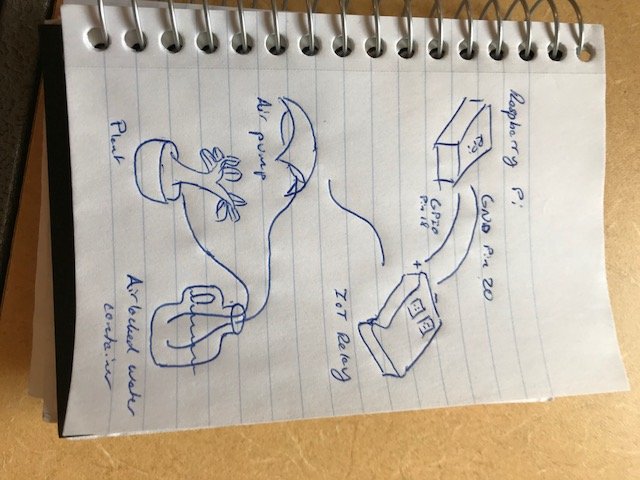 Raspberry Pi
Pi
GND Pin 20
GPIO
Pin 18
+ -
IoT Relay
Air pump
Plant
Airlocked water
container